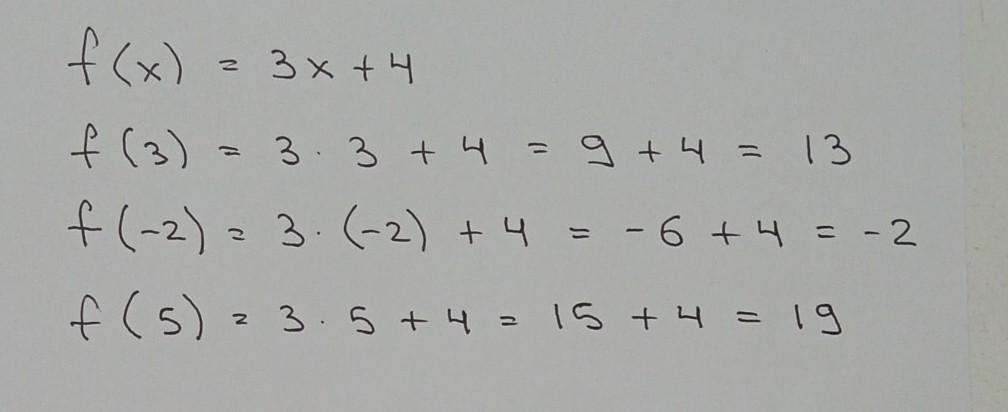 f(x) = 3x + 4
f(3) = 3 · 3 + 4 = 9 + 4 = 13
f(-2) = 3 · (-2) + 4 = -6 + 4 = -2
f(5) = 3 · 5 + 4 = 15 + 4 = 19